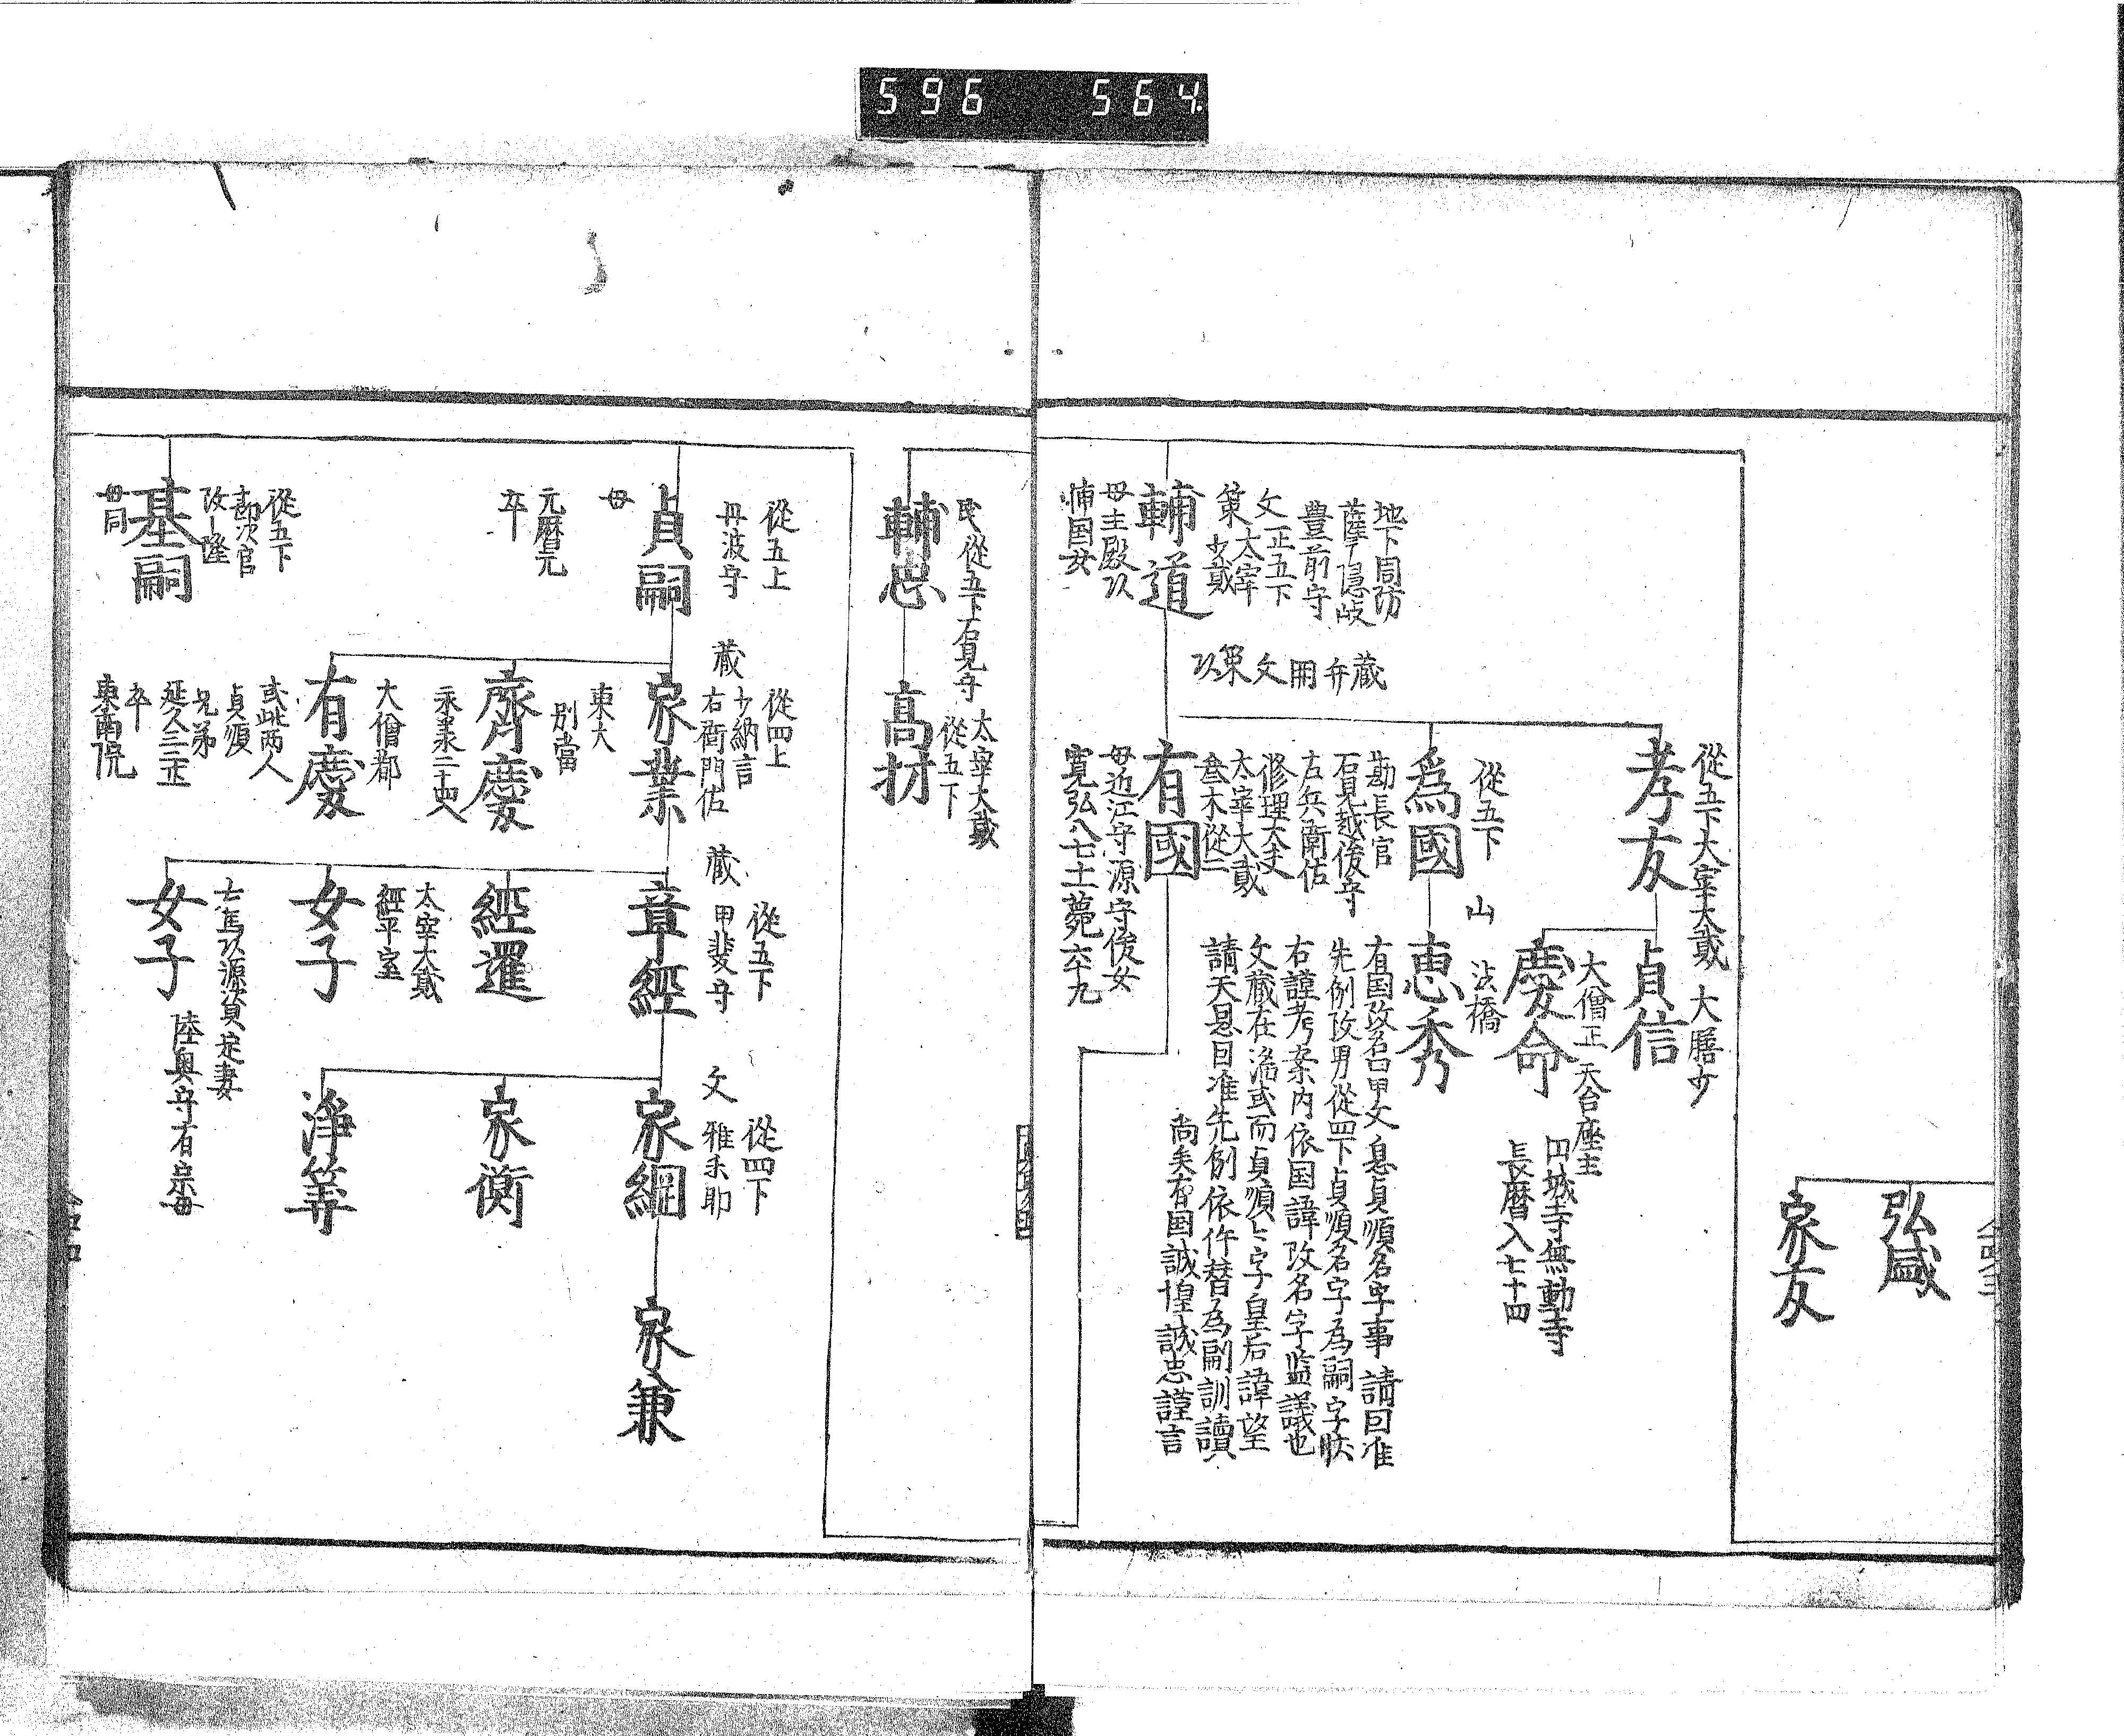 596 564
弘盛
家友
從五下大宰大貳
孝友
大膳少
貞信
大僧正 天台座主
慶命
円城寺無動寺
長暦八七十四
從五下
為國
山 法橋
恵秀
地下周防
薩广隠岐
豊前守
文正五下
策太宰
少貳
輔道
母主殿以
惟国女
蔵弁朋文策以
勘長官
石見越後守
右兵衛佐
修理大夫
太宰大貳
叁木從二
有國
母近江守源守俊女
寛弘八七十一薨六十九
有国改名申文 息貞順名字事 請因准
先例改男從四下貞順名字為嗣字
右謹考案内依国諱改名字監議也
文蔵在 而貞順々字皇后諱望
請天恩因准先例依件替為嗣訓讀
尚矣有国誠惶誠忠謹言
民從五下石見守
輔忠
太宰大貳
從五下
高材
從五上
丹波守
貞嗣
母
元暦元
卒
蔵
從四上
少納言
右衛門佐
家業
東大
別當
齊慶
永承二十四入
大僧都
有慶
或此两人
貞順
兄弟
延久三二正
卒
東南院
蔵
從五下
甲斐守
章經
經暹
太宰大貳
經平室
女子
左馬以源資定妻
女子
陸奥守有宗母
文
從四下
雅樂助
家綱
家衡
淨算
家兼
從五下
勘次官
改隆
基嗣
母同